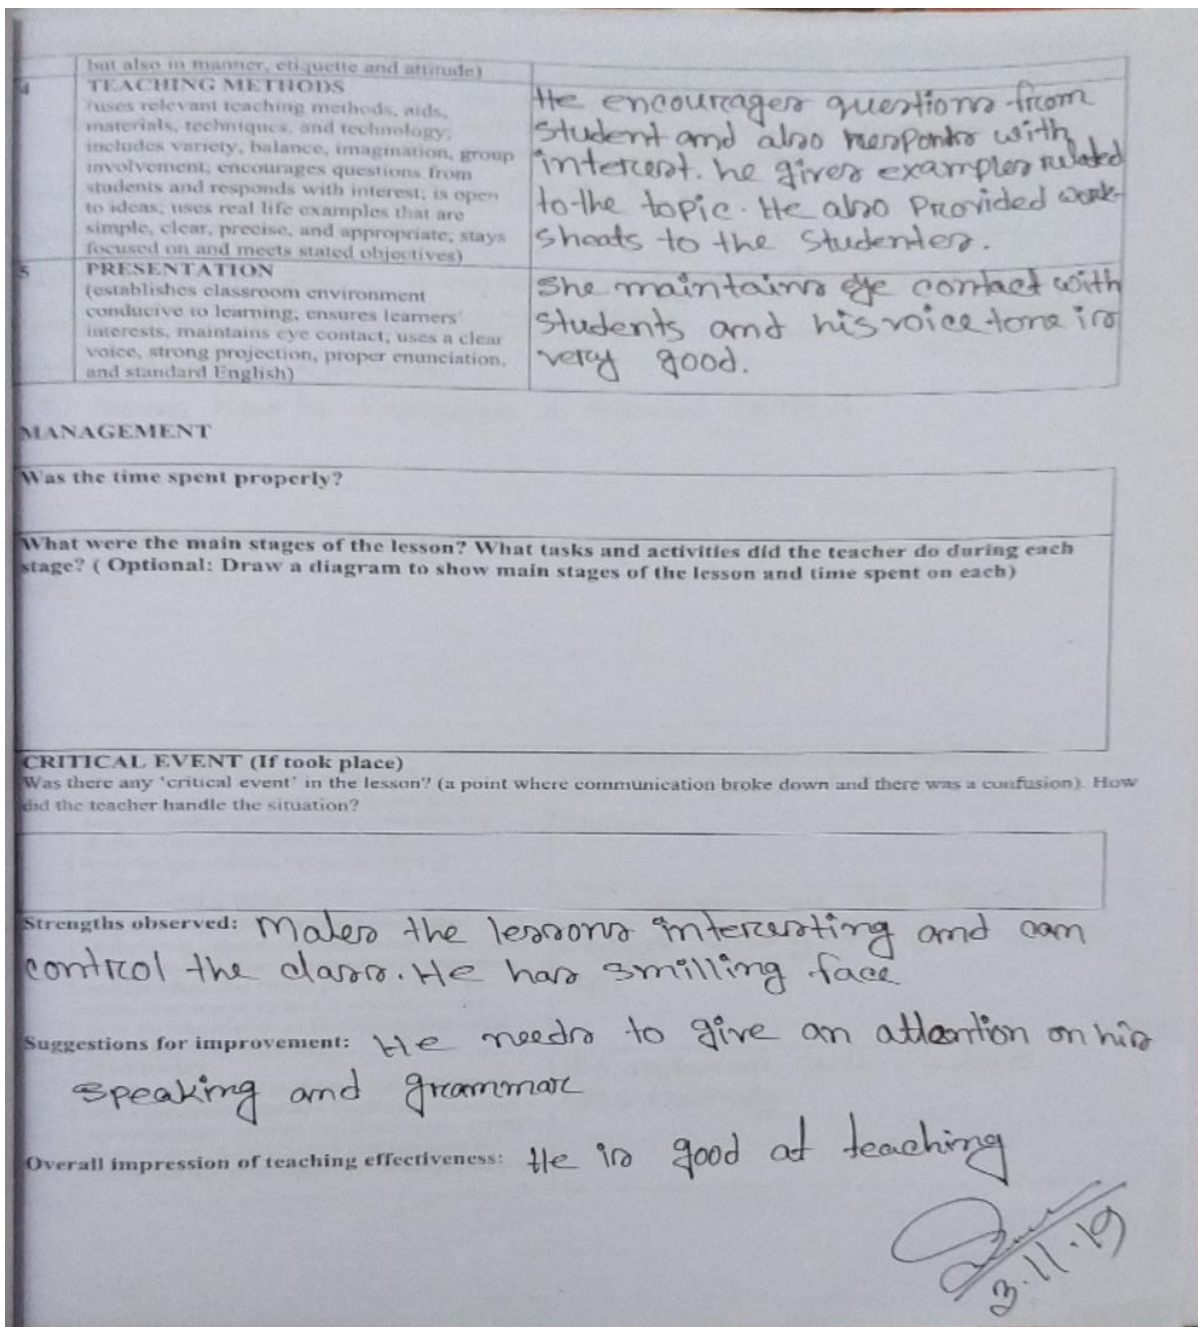 but also in manner, etiquette and attitude)
4
TEACHING METHODS
(uses relevant teaching methods, aids,
materials, techniques, and technology;
includes variety, balance, imagination, group
involvement; encourages questions from
students and responds with interest; is open
to ideas; uses real life examples that are
simple, clear, precise, and appropriate; stays
focused on and meets stated objectives)
He encourages questions from
student and also responds with
interest. he gives examples related
to the topic. He also Provided work-
sheats to the Studentes.
5
PRESENTATION
(establishes classroom environment
conducive to learning; ensures learners'
interests, maintains eye contact; uses a clear
voice, strong projection, proper enunciation,
and standard English)
She maintains eye contact with
students and his voice tone is
very good.
MANAGEMENT
Was the time spent properly?
What were the main stages of the lesson? What tasks and activities did the teacher do during each
stage? ( Optional: Draw a diagram to show main stages of the lesson and time spent on each)
CRITICAL EVENT (If took place)
Was there any 'critical event' in the lesson? (a point where communication broke down and there was a confusion). How
did the teacher handle the situation?
Strengths observed: Makes the lessons interesting and can
control the class. He has smilling face
Suggestions for improvement: He needs to give an attention on his
speaking and grammar
Overall impression of teaching effectiveness: He is good at teaching
3.11.19